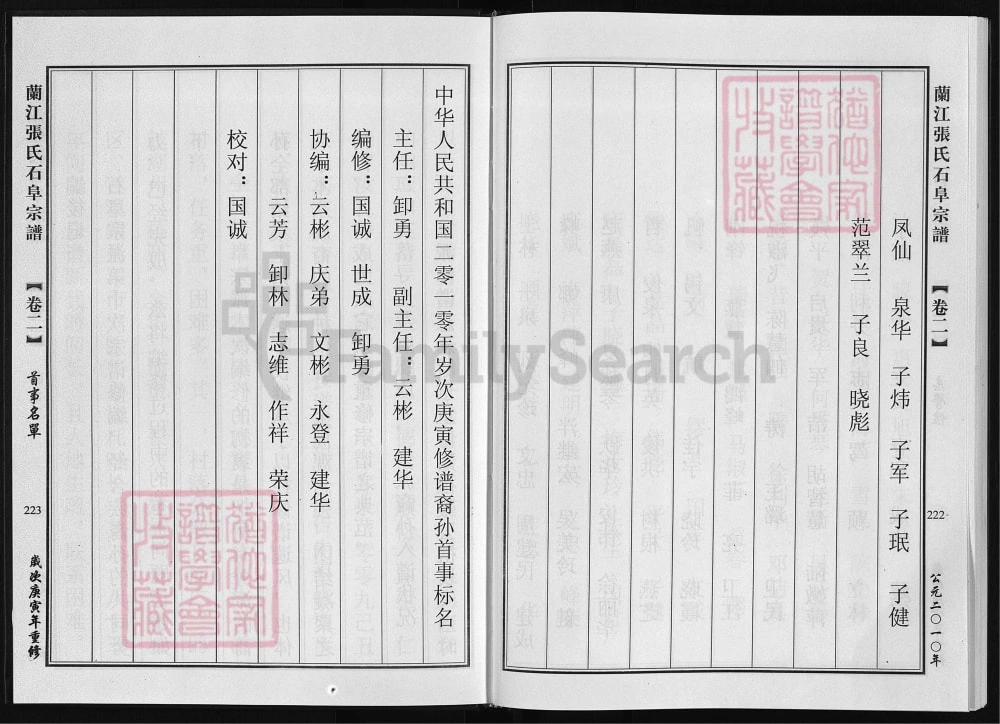 蘭江張氏石阜宗譜
【卷二】
222
公元二〇一〇年
凤仙 泉华 子炜 子军 子珉 子健
范翠兰 子良 晓彪
中华人民共和国二零一零年岁次庚寅修谱裔孙首事标名
主任：卸勇 副主任：云彬 建华
编修：国诚 世成 卸勇
协编：云彬 庆弟 文彬 永登 建华
云芳 卸林 志维 作祥 荣庆
校对：国诚
蘭江張氏石阜宗譜
【卷二】
首事名單
223
歲次庚寅年重修
FamilySearch